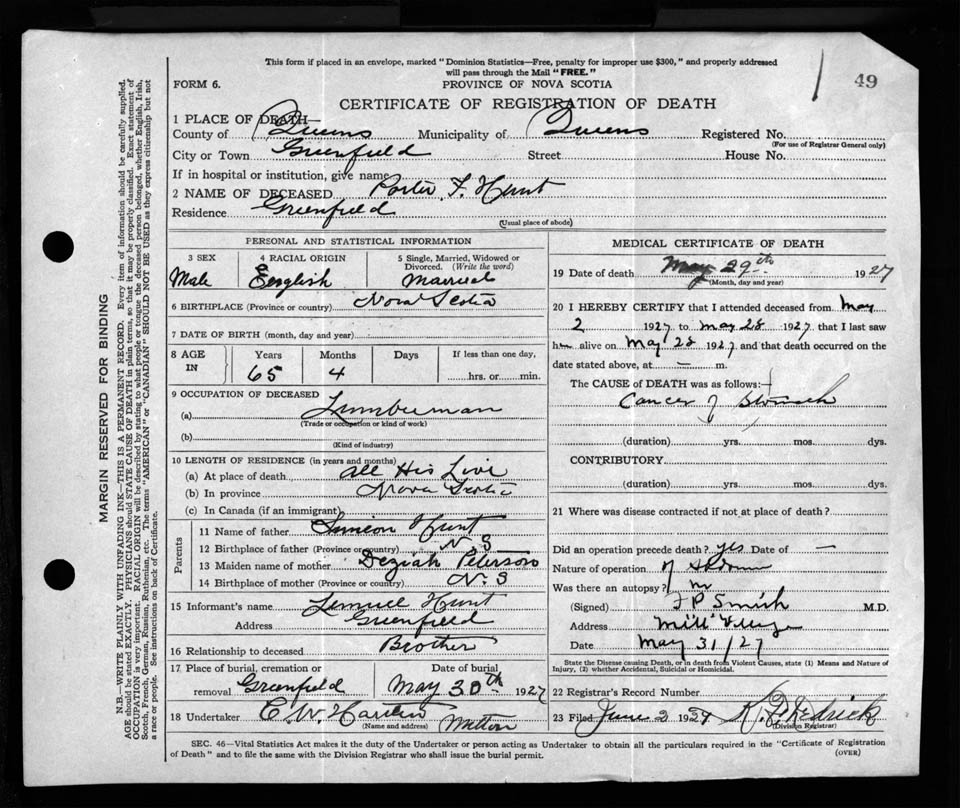 This form if placed in an envelope, marked "Dominion Statistics—Free, penalty for improper use $300," and properly addressed
will pass through the Mail "FREE."
FORM 6.
PROVINCE OF NOVA SCOTIA
49
CERTIFICATE OF REGISTRATION OF DEATH
1 PLACE OF DEATH—
County of Queens Municipality of Queens Registered No.
(For use of Registrar General only)
City or Town Greenfield Street House No.
If in hospital or institution, give name
2 NAME OF DECEASED Porter F. Hunt
Residence Greenfield
(Usual place of abode)
PERSONAL AND STATISTICAL INFORMATION
3 SEX 4 RACIAL ORIGIN 5 Single, Married, Widowed or Divorced. (Write the word)
Male English Married
6 BIRTHPLACE (Province or country) Nova Scotia
7 DATE OF BIRTH (month, day and year)
8 AGE IN Years Months Days If less than one day,
65 4 hrs. or min.
9 OCCUPATION OF DECEASED
(a) Lumberman
(Trade or occupation or kind of work)
(b)
(Kind of industry)
10 LENGTH OF RESIDENCE (in years and months)
(a) At place of death All His Live
(b) In province Nova Scotia
(c) In Canada (if an immigrant)
Parents
11 Name of father Simeon Hunt
12 Birthplace of father (Province or country) N S
13 Maiden name of mother Deziah Peterson
14 Birthplace of mother (Province or country) N. S
15 Informant's name Lemuel Hunt
Address Greenfield
16 Relationship to deceased Brother
17 Place of burial, cremation or removal Greenfield
Date of burial May 30th 1927
18 Undertaker C. W. Milton
(Name and address)
MEDICAL CERTIFICATE OF DEATH
19 Date of death May 29th 1927
(Month, day and year)
20 I HEREBY CERTIFY that I attended deceased from May
2 1927 to May 28 1927 that I last saw
him alive on May 28 1927 and that death occurred on the
date stated above, at — m.
The CAUSE of DEATH was as follows:—
Cancer of Stomach
(duration) yrs. mos. dys.
CONTRIBUTORY
(duration) yrs. mos. dys.
21 Where was disease contracted if not at place of death?
Did an operation precede death? yes Date of —
Nature of operation of
Was there an autopsy? no
(Signed) F P Smith M.D.
Address Mill Village
Date May 31/27
State the Disease causing Death, or in death from Violent Causes, state (1) Means and Nature of
Injury, (2) whether Accidental, Suicidal or Homicidal.
22 Registrar's Record Number
23 Filed June 2 1927
(Division Registrar)
SEC. 46—Vital Statistics Act makes it the duty of the Undertaker or person acting as Undertaker to obtain all the particulars required in the "Certificate of Registration
of Death" and to file the same with the Division Registrar who shall issue the burial permit.
(OVER)
MARGIN RESERVED FOR BINDING
N.B.—WRITE PLAINLY WITH UNFADING INK—THIS IS A PERMANENT RECORD. Every item of information should be carefully supplied.
AGE should be stated EXACTLY. PHYSICIANS should STATE CAUSE OF DEATH in plain terms, so that it may be properly classified. Exact statement of
OCCUPATION is very important. RACIAL ORIGIN will be described by stating to what people or tongue the deceased person belonged, whether English, Irish,
Scotch, French, German, Russian, Ruthenian, etc. The terms "AMERICAN" or "CANADIAN" SHOULD NOT BE USED as they express citizenship but not
a race or people. See instructions on back of Certificate.